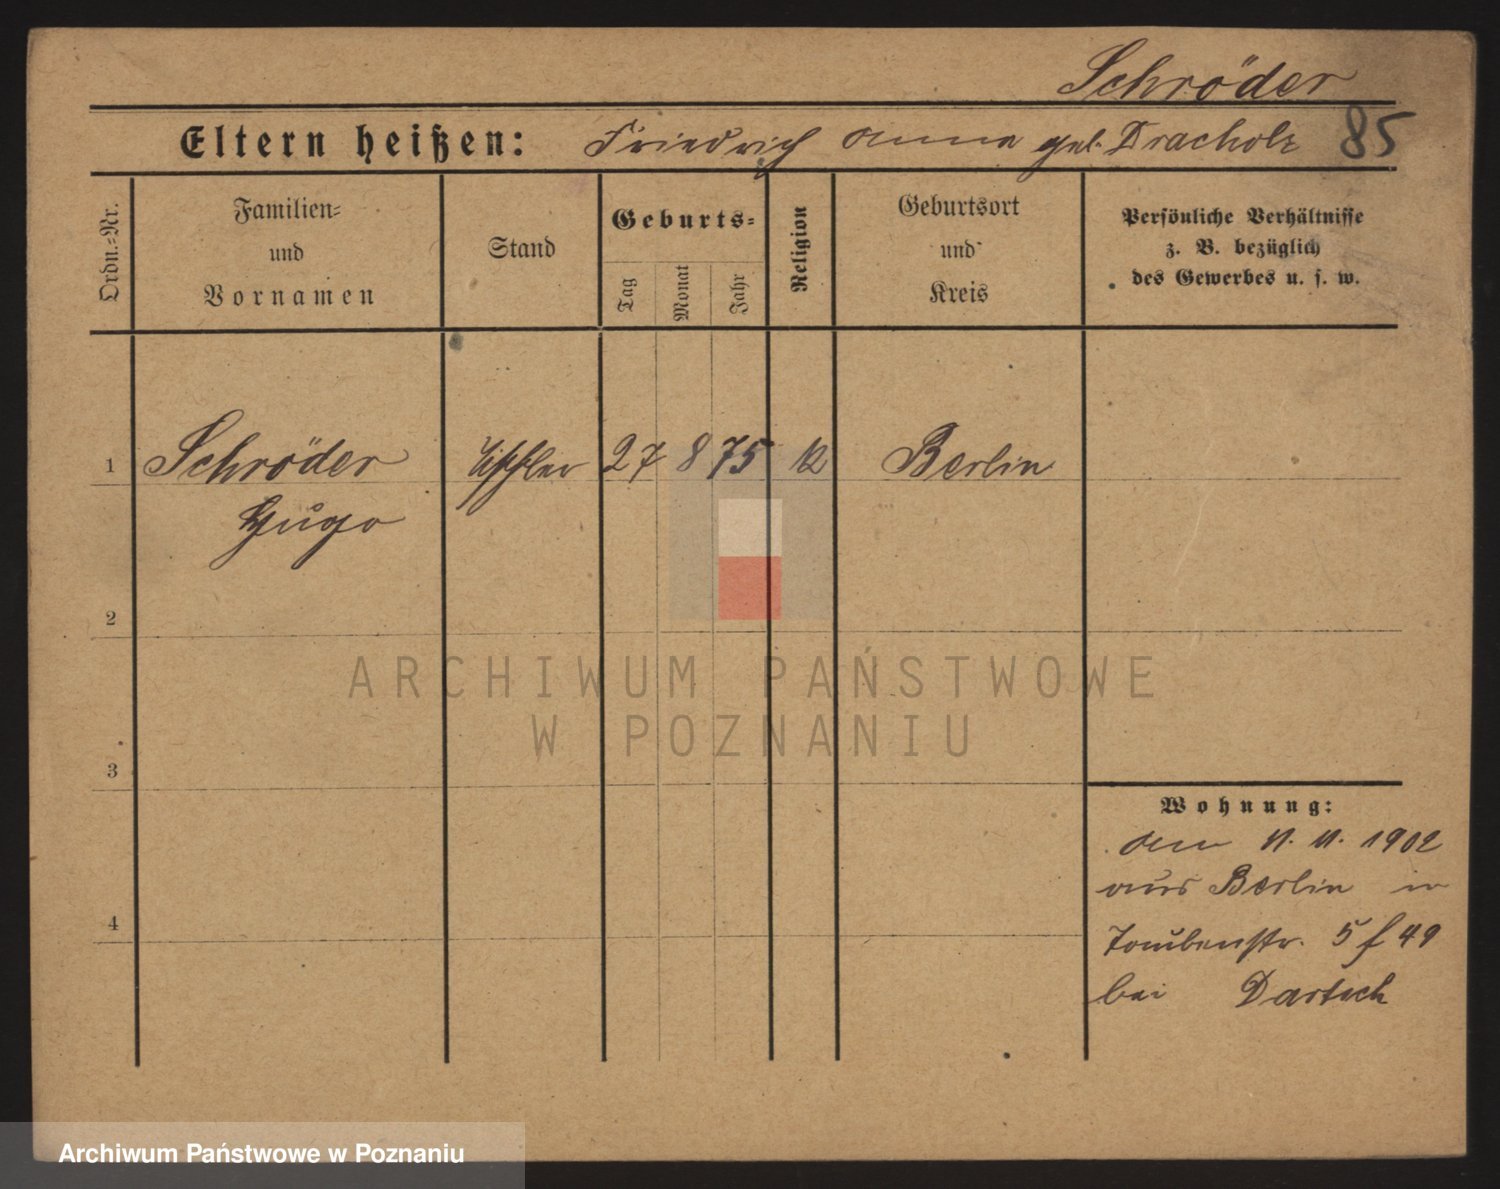 Schröder
Eltern heißen: Friedrich Anna geb. Dracholz 85
Ordn.-Nr.
Familien-
und
Vornamen
Stand
Geburts-
Tag
Monat
Jahr
Religion
Geburtsort
und
Kreis
Persönliche Verhältnisse
z. B. bezüglich
des Gewerbes u. s. w.
1 Schröder Tischler 27 8 75 k Berlin
Hugo
2
3
4
Wohnung:
den 11. 11. 1902
aus Berlin in
Taubenstr. 5 f 49
bei Dartsch
ARCHIWUM PAŃSTWOWE
W POZNANIU
Archiwum Państwowe w Poznaniu